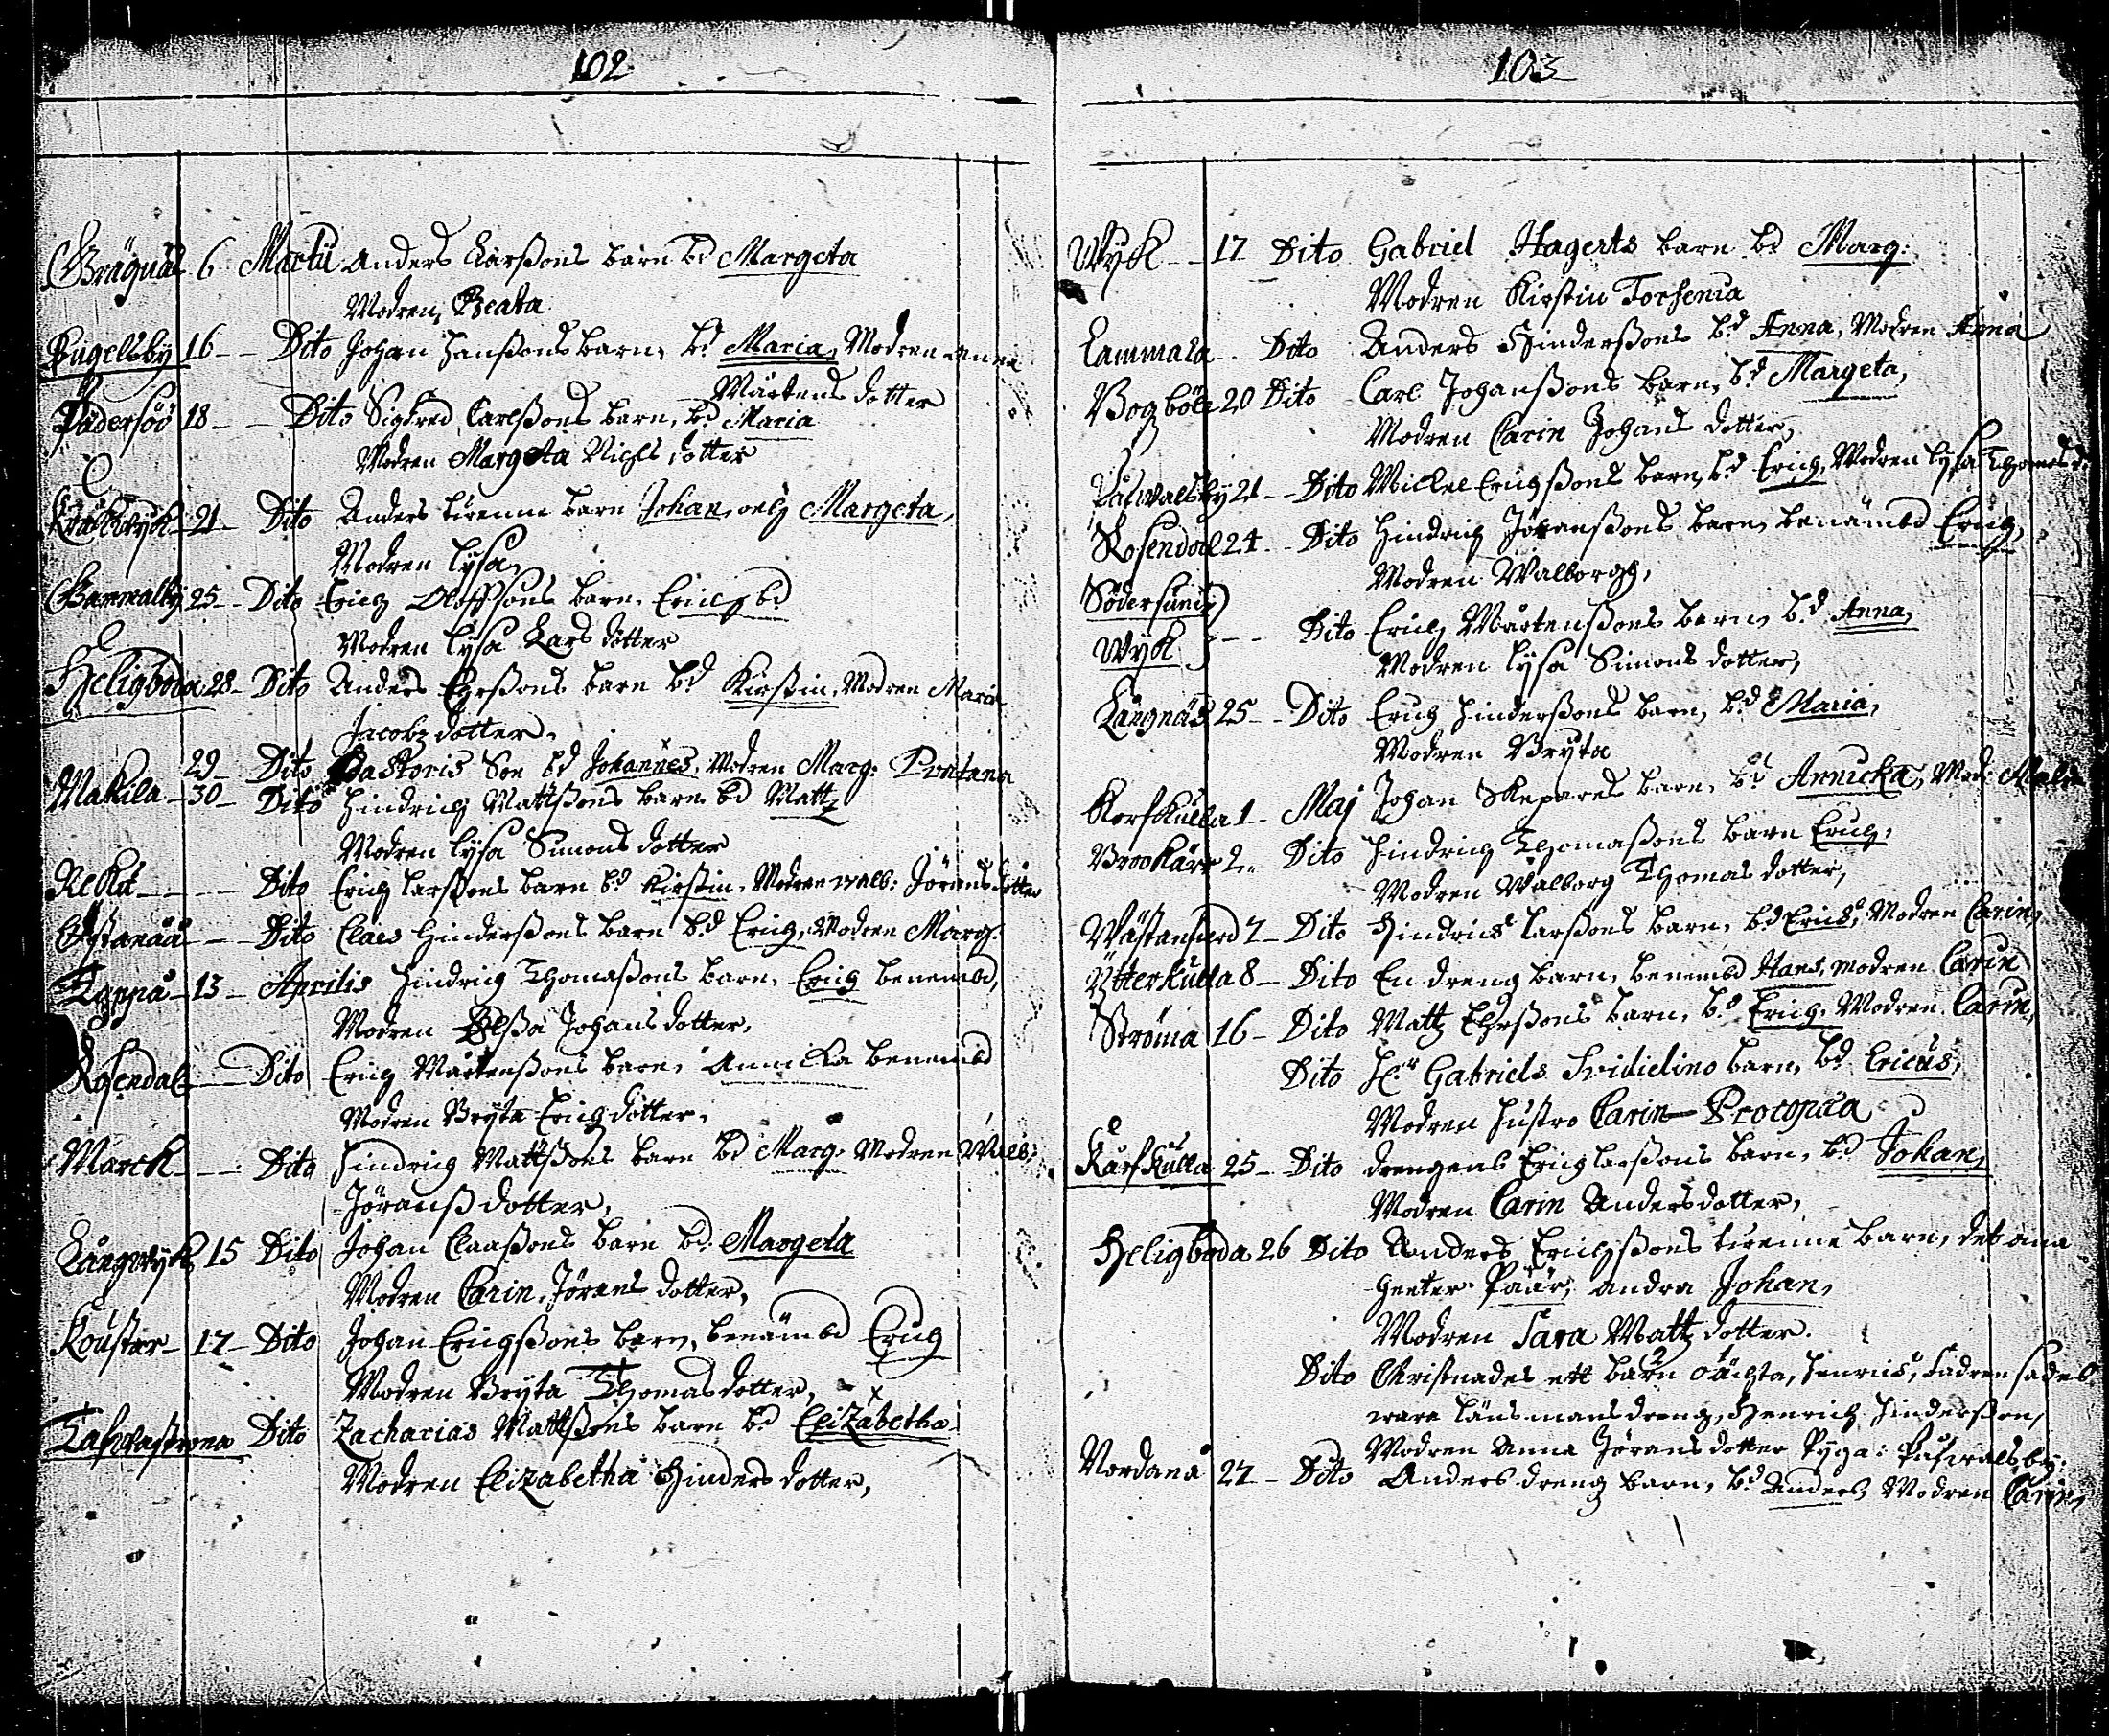 102
Grägnäs 6 Martii Anders Larßons barn bd Margeta
Modren, Beata
Pugelsby 16 - - Dito Johan Hanßons barn, bd Maria, Modren Anna
Mårtens dotter
Pådersöö 18 - - Dito Sigfred Carlßons barn, bd Maria
Modren Margeta Nichls dotter
21 - Dito Anders tirenne barn Johan, och Margeta,
Modren Lysa,
Gammalby 25 - - Dito Erich Olofssons barn, Erich bd
Modren Lysa Lars dotter
Heligboda 28 - Dito Anders Ehrßons barn bd Kirstin, Modren Maria
Jacobz dotter.
29 - Dito Pastoris Son bd Johannes, Modren Marg: Pontana
Makila - 30 - Dito Hindrich Mattßons barn bd Mattz
Modren Lysa Simons dotter
Rekü - - - Dito Erich Larßons barn bd Kirstin, Modren Walb: Jörans dotter
Östanåå - - Dito Claes Hinderßons barn bd Erich, Modren Marg.
Tappå - 13 - Aprilis Hindrich Thomaßons barn, Erich benembd,
Modren Elßa Johans dotter,
Rosendal - - Dito Erich Mårtenßons barn, Annicka benembd
Modren Bryta Erichz dotter,
Marck - - Dito Hindrich Mattßons barn bd Marg: Modren Walb:
Jöranß dotter,
Långwyk 15 Dito Johan Claaßons barn bd. Margeta
Modren Carin, Jörans dotter,
Kouster - 17 - Dito Johan Erichßons barn, benämbd Erich
Modren Bryta Thomas dotter,
Tafwastrena Dito Zacharias Mattßons barn bd Elizabetha
Modren Elizabetha Hinders dotter,
103
Wyk - - 17 Dito Gabriel Hagerts barn bd Marg:
Modren Kirstin Torsenia
Lammala - - Dito Anders Hinderßons bd Anna, Modren Anna
Bogböle 20 Dito Carl Johanßons barn, bd Margeta,
Modren Carin Johans dotter,
21 - - Dito Mickel Erichßons barn, bd Erich, Modren Lysa Thomas d.
Rosendal 24 - - Dito Hindrich Jöranßons barn, benämbd Erich,
Modren Walborgh,
Södersund
Wyk - - Dito Erich Mårtenßons barn bd Anna,
Modren Lysa Simons dotter,
Långnäs 25 - - Dito Erich Hinderßons barn, bd Maria,
Modren Bryta
Korfkulla 1 - Maj Johan Skepares barn, bd Annicka, Mod: Malin
Brookärr 2 - Dito Hindrich Thomaßons barn Erich,
Modren Walborg Thomas dotter,
Wästanfierd 7 - Dito Hindrics Larßons barn, bd Erics, Modren Carin,
Ytterkulla 8 - Dito En dreng barn, benembd Hans, modren Carin
Ströma 16 - Dito Mattz Ehrßons barn, bd Erich, Modren Carin,
Dito Hr Gabriels Fridielino barn, bd Ericus,
Modren Hustro Carin Procopæa
Kärfkulla 25 - Dito drengens Erich Larßons barn, bd Johan,
Modren Carin Andersdotter,
Heligboda 26 Dito Anders Erichßons tirenne barn, det ena
heeter Påår, andra Johan,
Modren Sara Mattz dotter.
Dito Christnades ett barn oächta, Henrics, Fadren sades
wara länsmans dreng, Henrich Hinderßon,
Modren Anna Jörans dotter Pyga:
Nordanå 27 - Dito Anders dreng barn, bd Anders, Modren Carin,